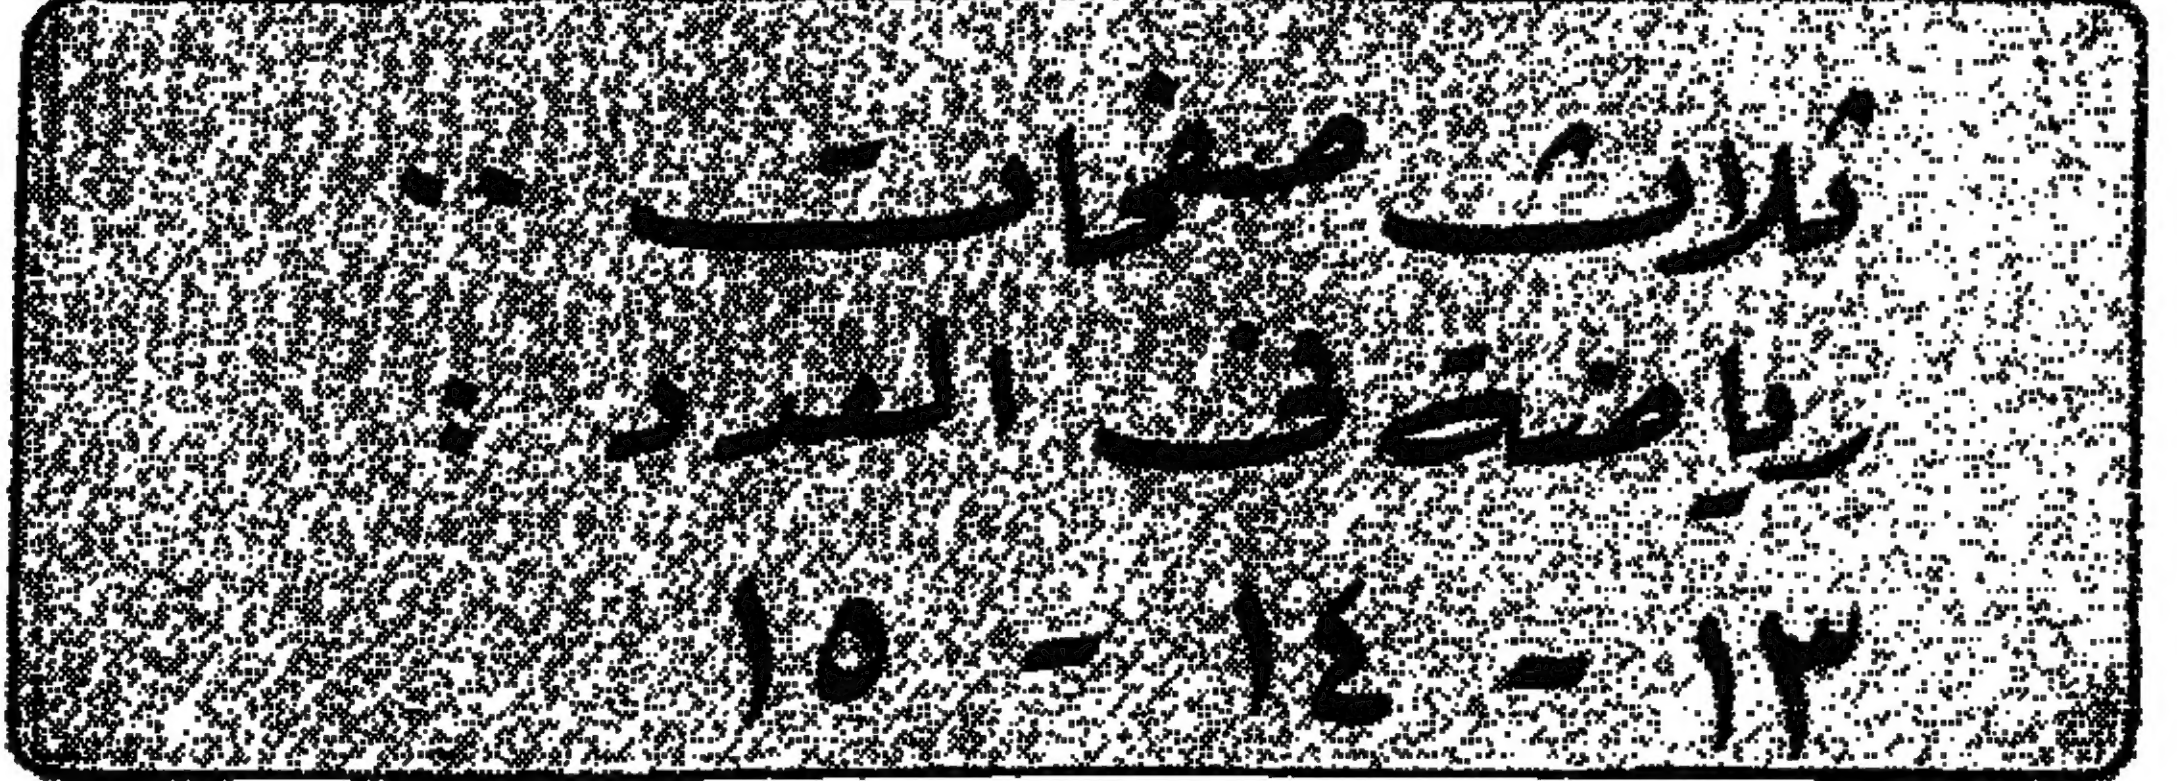 ثلاث صفحات ..
رياضة في العدد :
١٣ - ١٤ - ١٥